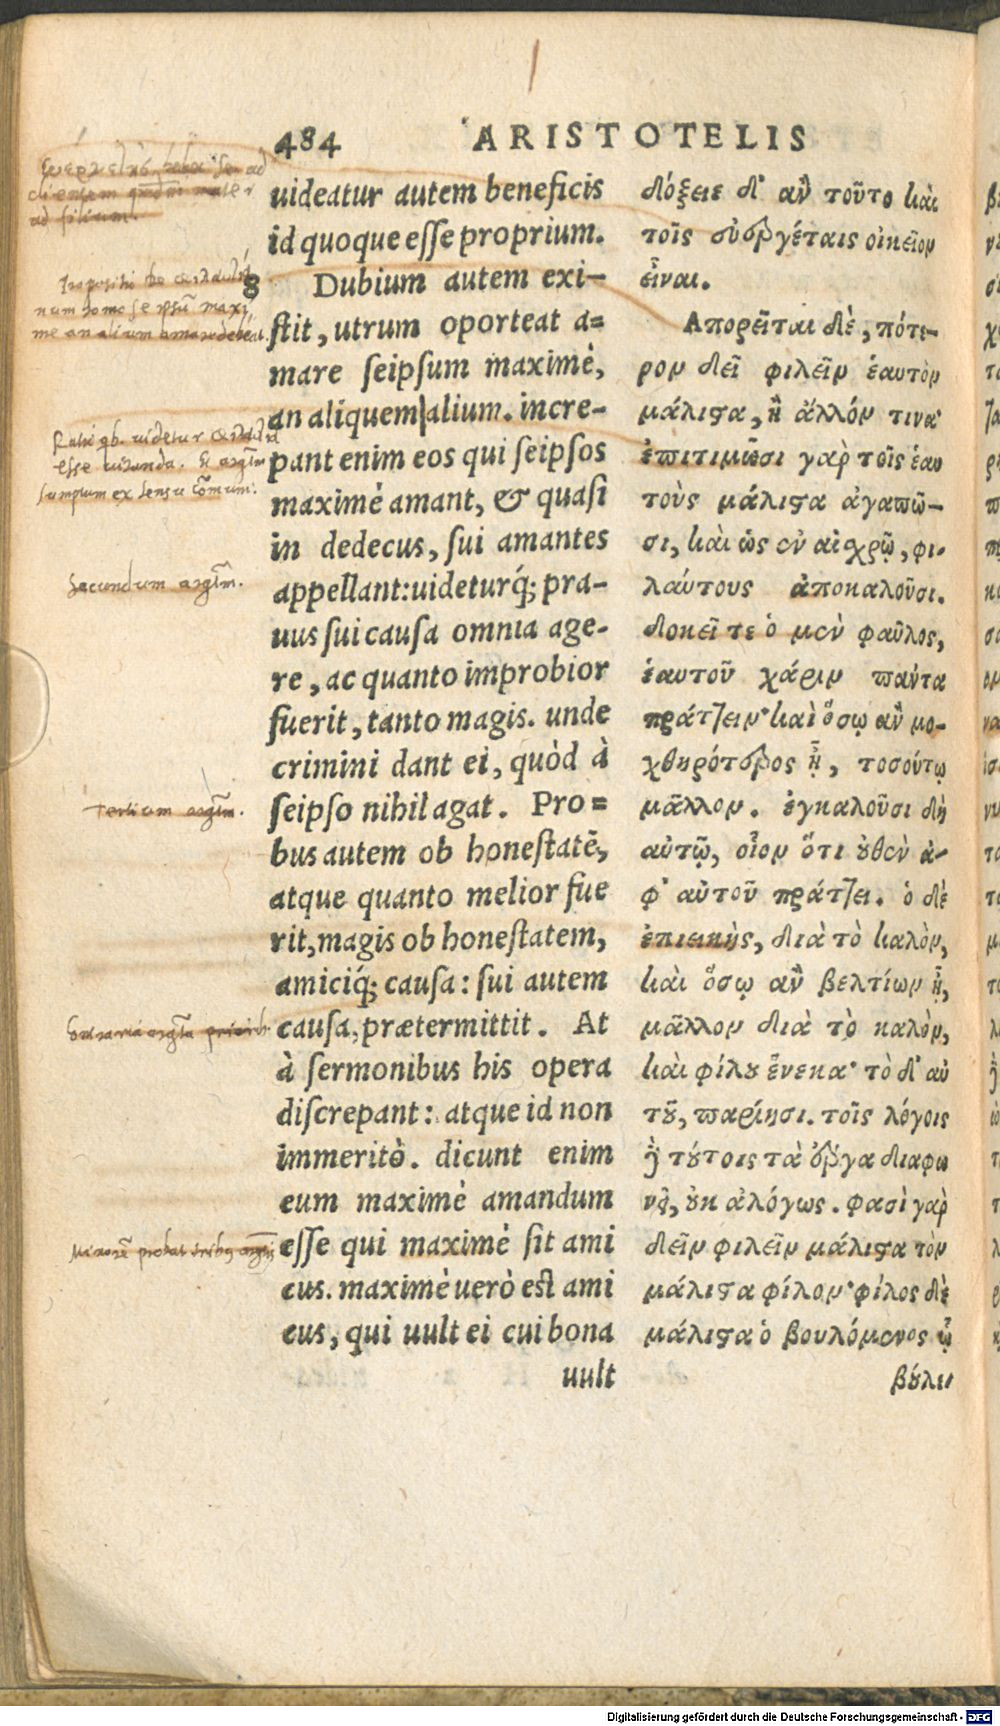 484 ARISTOTELIS
uideatur autem beneficis
id quoque esse proprium.
8 Dubium autem exi-
stit, utrum oporteat a=
mare seipsum maximè,
an aliquem|alium. incre-
pant enim eos qui seipsos
maximè amant, & quasi
in dedecus, sui amantes
appellant: uideturq́; pra-
uus sui causa omnia age-
re, ac quanto improbior
fuerit, tanto magis. unde
crimini dant ei, quòd à
seipso nihil agat. Pro=
bus autem ob honestatē,
atque quanto melior fue
rit, magis ob honestatem,
amiciq́; causa: sui autem
causa, prætermittit. At
à sermonibus his opera
discrepant: atque id non
immeritò. dicunt enim
eum maximè amandum
esse qui maximè sit ami
cus. maximè uerò est ami
cus, qui uult ei cui bona
uult
δόξειε δ' ἂν τοῦτο καὶ
τοῖς εὐεργέταις οἰκεῖον
εἶναι.
Απορεῖται δὲ, πότε-
ρον δεῖ φιλεῖν ἑαυτὸν
μάλιϛα, ἢ ἄλλόν τινα·
ἐπιτιμῶσι γὰρ τοῖς ἑαυ
τοὺς μάλιϛα ἀγαπῶ-
σι, καὶ ὡς ἐν αἰσχρῷ, φι-
λαύτους ἀποκαλοῦσι.
δοκεῖ τε ὁ μὲν φαῦλος,
ἑαυτοῦ χάριν πάντα
πράττειν· καὶ ὅσῳ ἂν μο-
χθηρότερος ᾖ, τοσούτῳ
μᾶλλον. ἐγκαλοῦσι δὴ
αὐτῷ, οἷον ὅτι ȣ̓θὲν ἀ-
φ' αὑτοῦ πράττει. ὁ δὲ
ἐπιεικὴς, διὰ τὸ καλὸν,
καὶ ὅσῳ ἂν βελτίων ᾖ,
μᾶλλον διὰ τὸ καλὸν,
καὶ φίλȣ ἕνεκα· τὸ δ' αὑ
τȣ͂, παρίησι. τοῖς λόγοις
ϳ̀ τȣ́τοις τὰ ἔργα διαφω
νεῖ, ȣ̓κ ἀλόγως. φασὶ γὰρ
δεῖν φιλεῖν μάλιϛα τὸν
μάλιϛα φίλον· φίλος δὲ
μάλιϛα ὁ βουλόμενος ᾧ
βȣ́λε
ad filium.
Secundum argm̄.
Tertium argm̄.
Digitalisierung gefördert durch die Deutsche Forschungsgemeinschaft - DFG